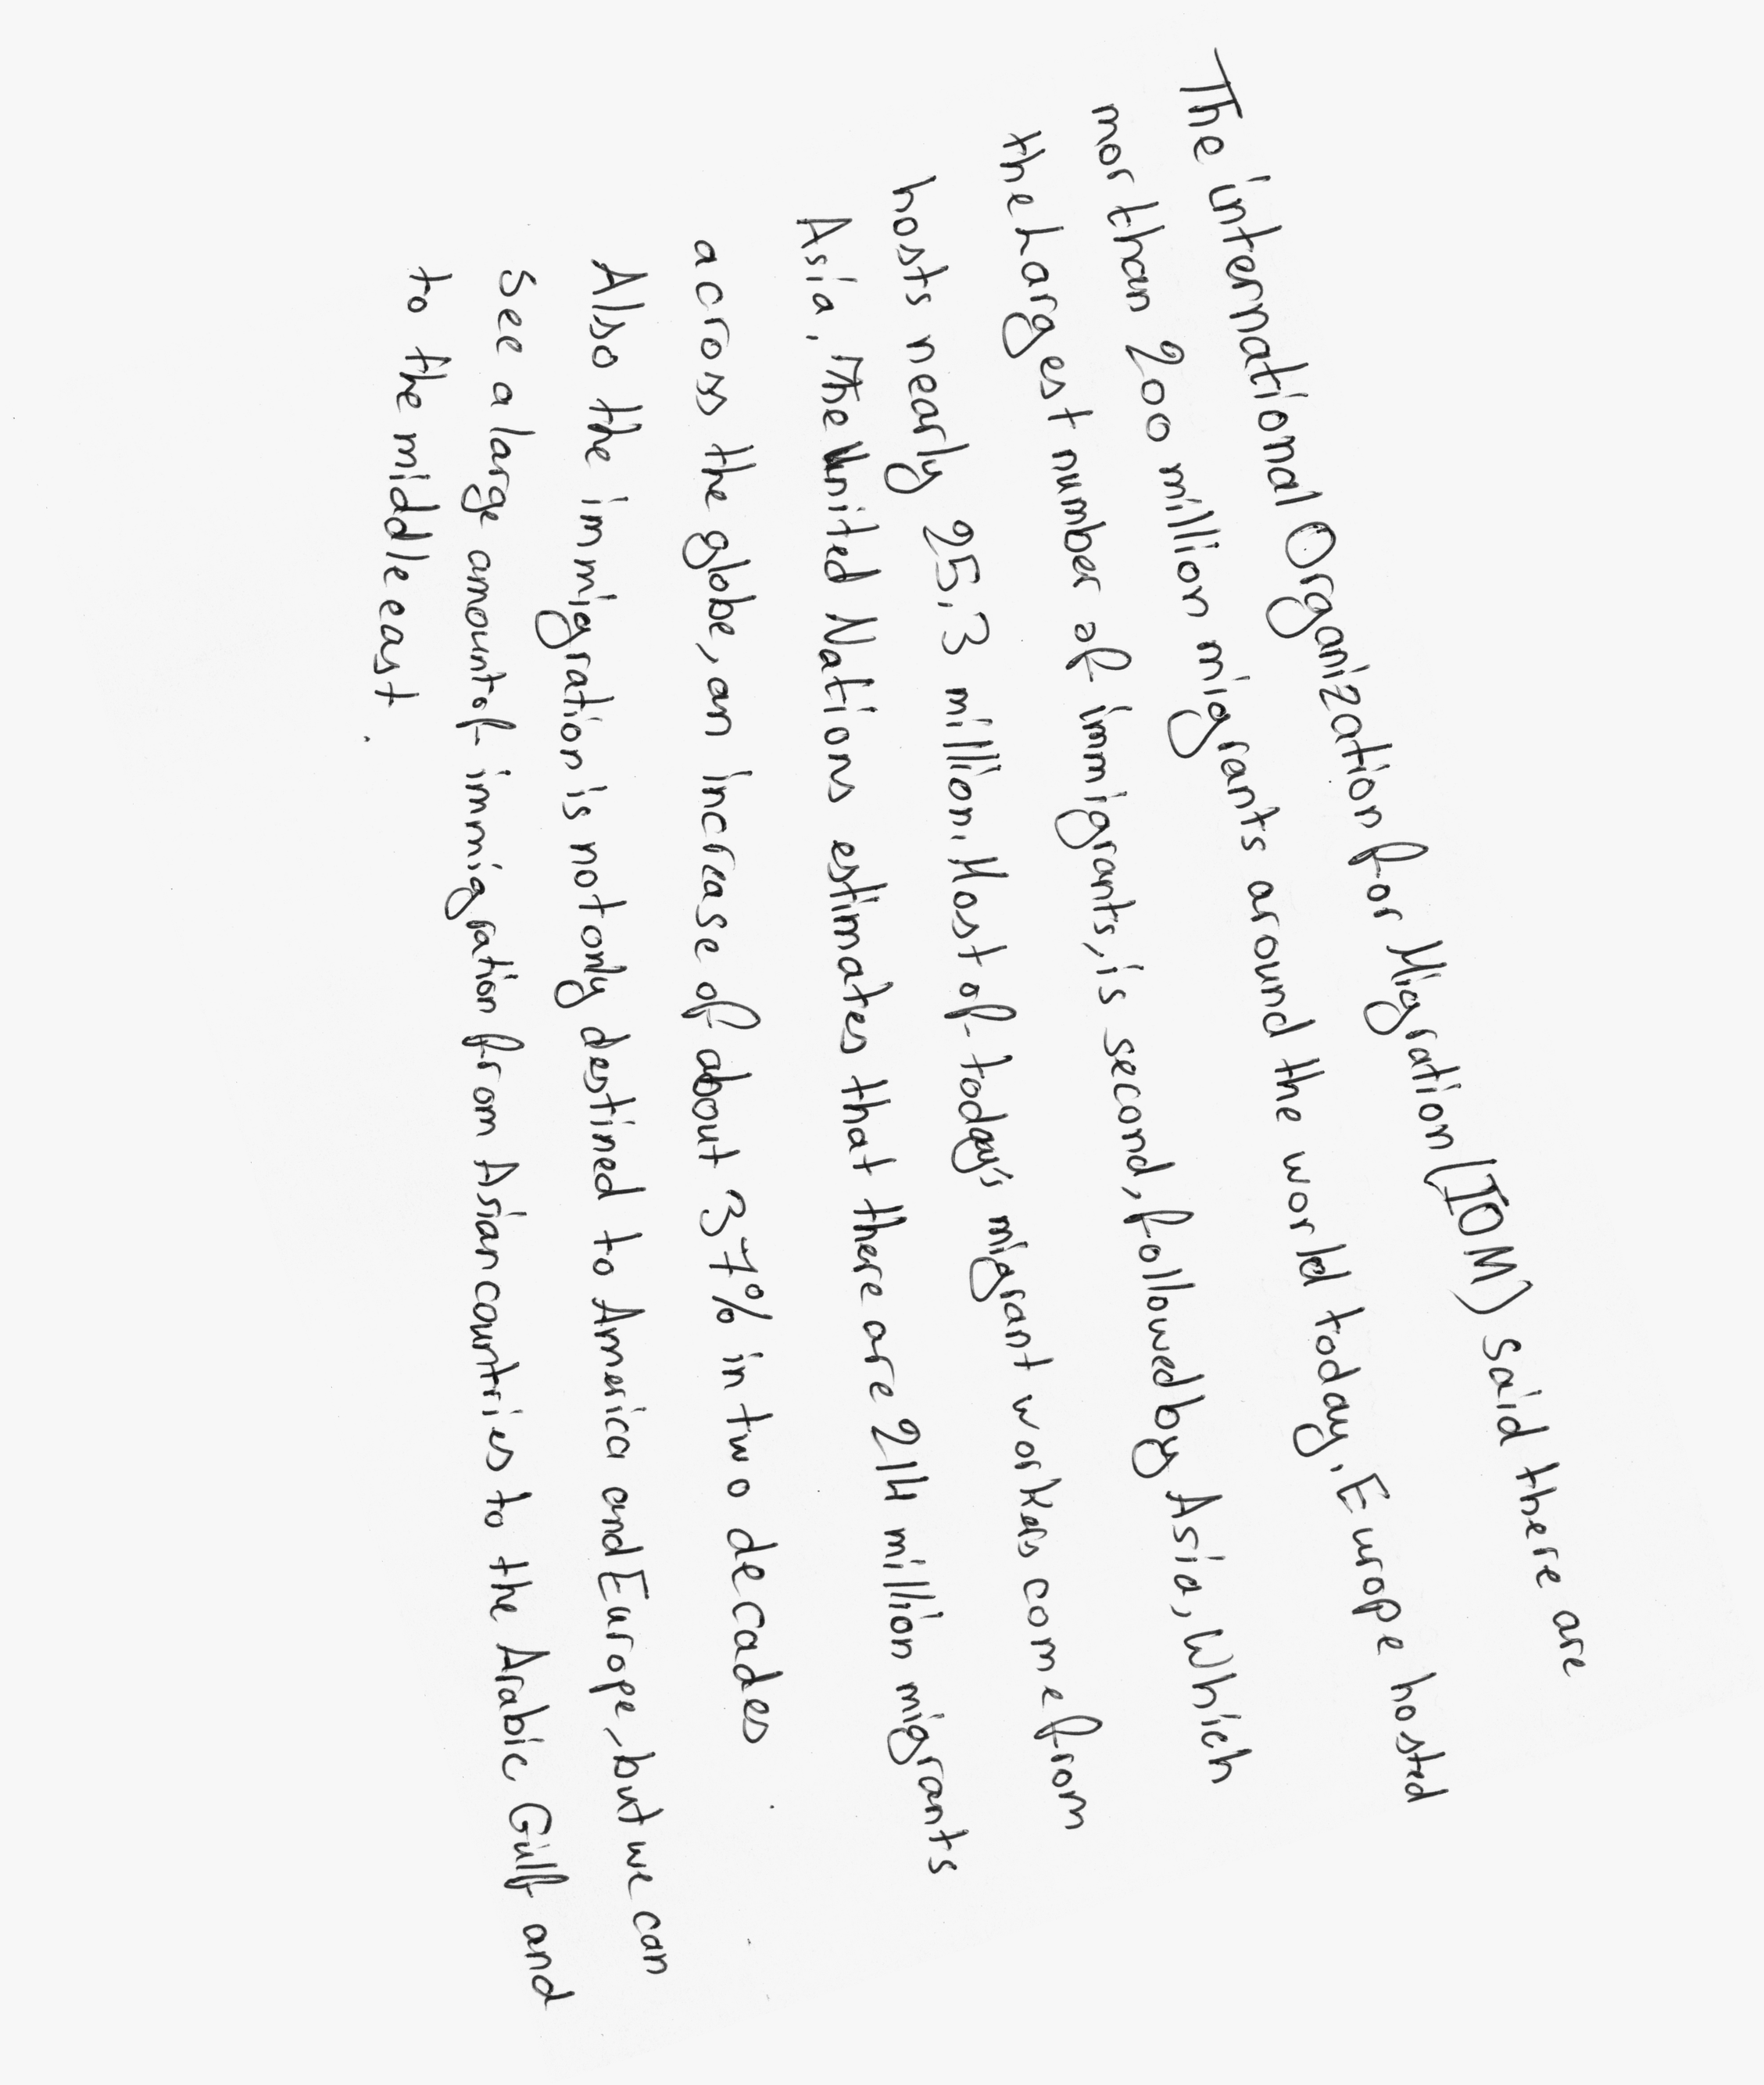 The international Organization for Migration (IOM) said there are
mor than 200 million migrants around the world today. Europe hosted
the Largest number of immigrants, is second, followed by Asia, Which
hosts nearly 25.3 million. Most of today's migrant workers come from
Asia, The United Nations estimates that there are 214 million migrants
across the globe, an increase of about 37% in two decades
Also the immigration is not only destined to America and Europe, but we can
See a large amount of immigration from Asian countries to the Arabic Gulf and
to the middle east.